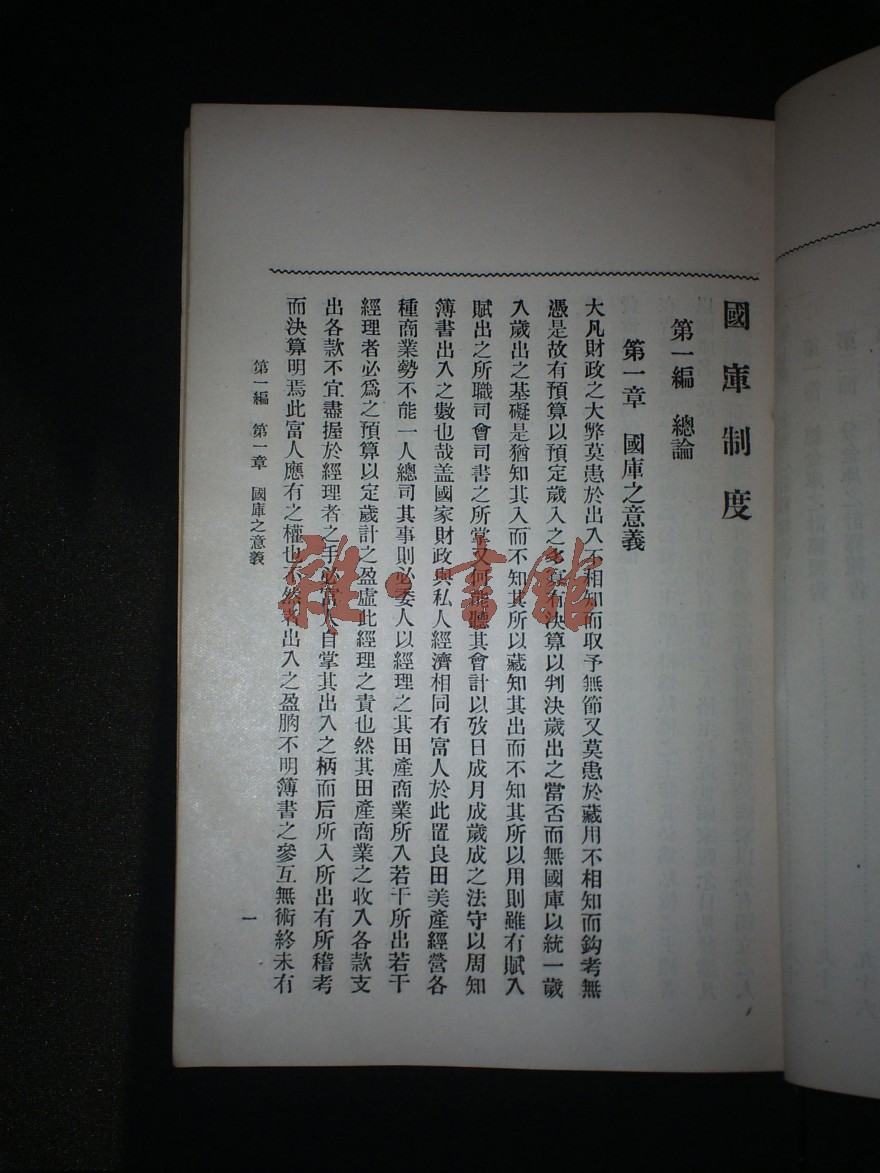 國庫制度
第一編 總論
第一章 國庫之意義
大凡財政之大弊莫患於出入不相知而取予無節又莫患於藏用不相知而鈎考無
憑是故有預算以預定歲入之多寡有決算以判決歲出之當否而無國庫以統一歲
入歲出之基礎是猶知其入而不知其所以藏知其出而不知其所以用則雖有賦入
賦出之所職司會司書之所掌又何能聽其會計以攷日成月成歲成之法守以周知
簿書出入之數也哉盖國家財政與私人經濟相同有富人於此置良田美產經營各
種商業勢不能一人總司其事則必委人以經理之其田產商業所入若干所出若干
經理者必爲之預算以定歲計之盈虛此經理之責也然其田產商業之收入各款支
出各款不宜盡握於經理者之手必富人自掌其出入之柄而后所入所出有所稽考
而決算明焉此富人應有之權也不然者出入之盈朒不明簿書之參互無術終未有
第一編 第一章 國庫之意義
一
雜·書館